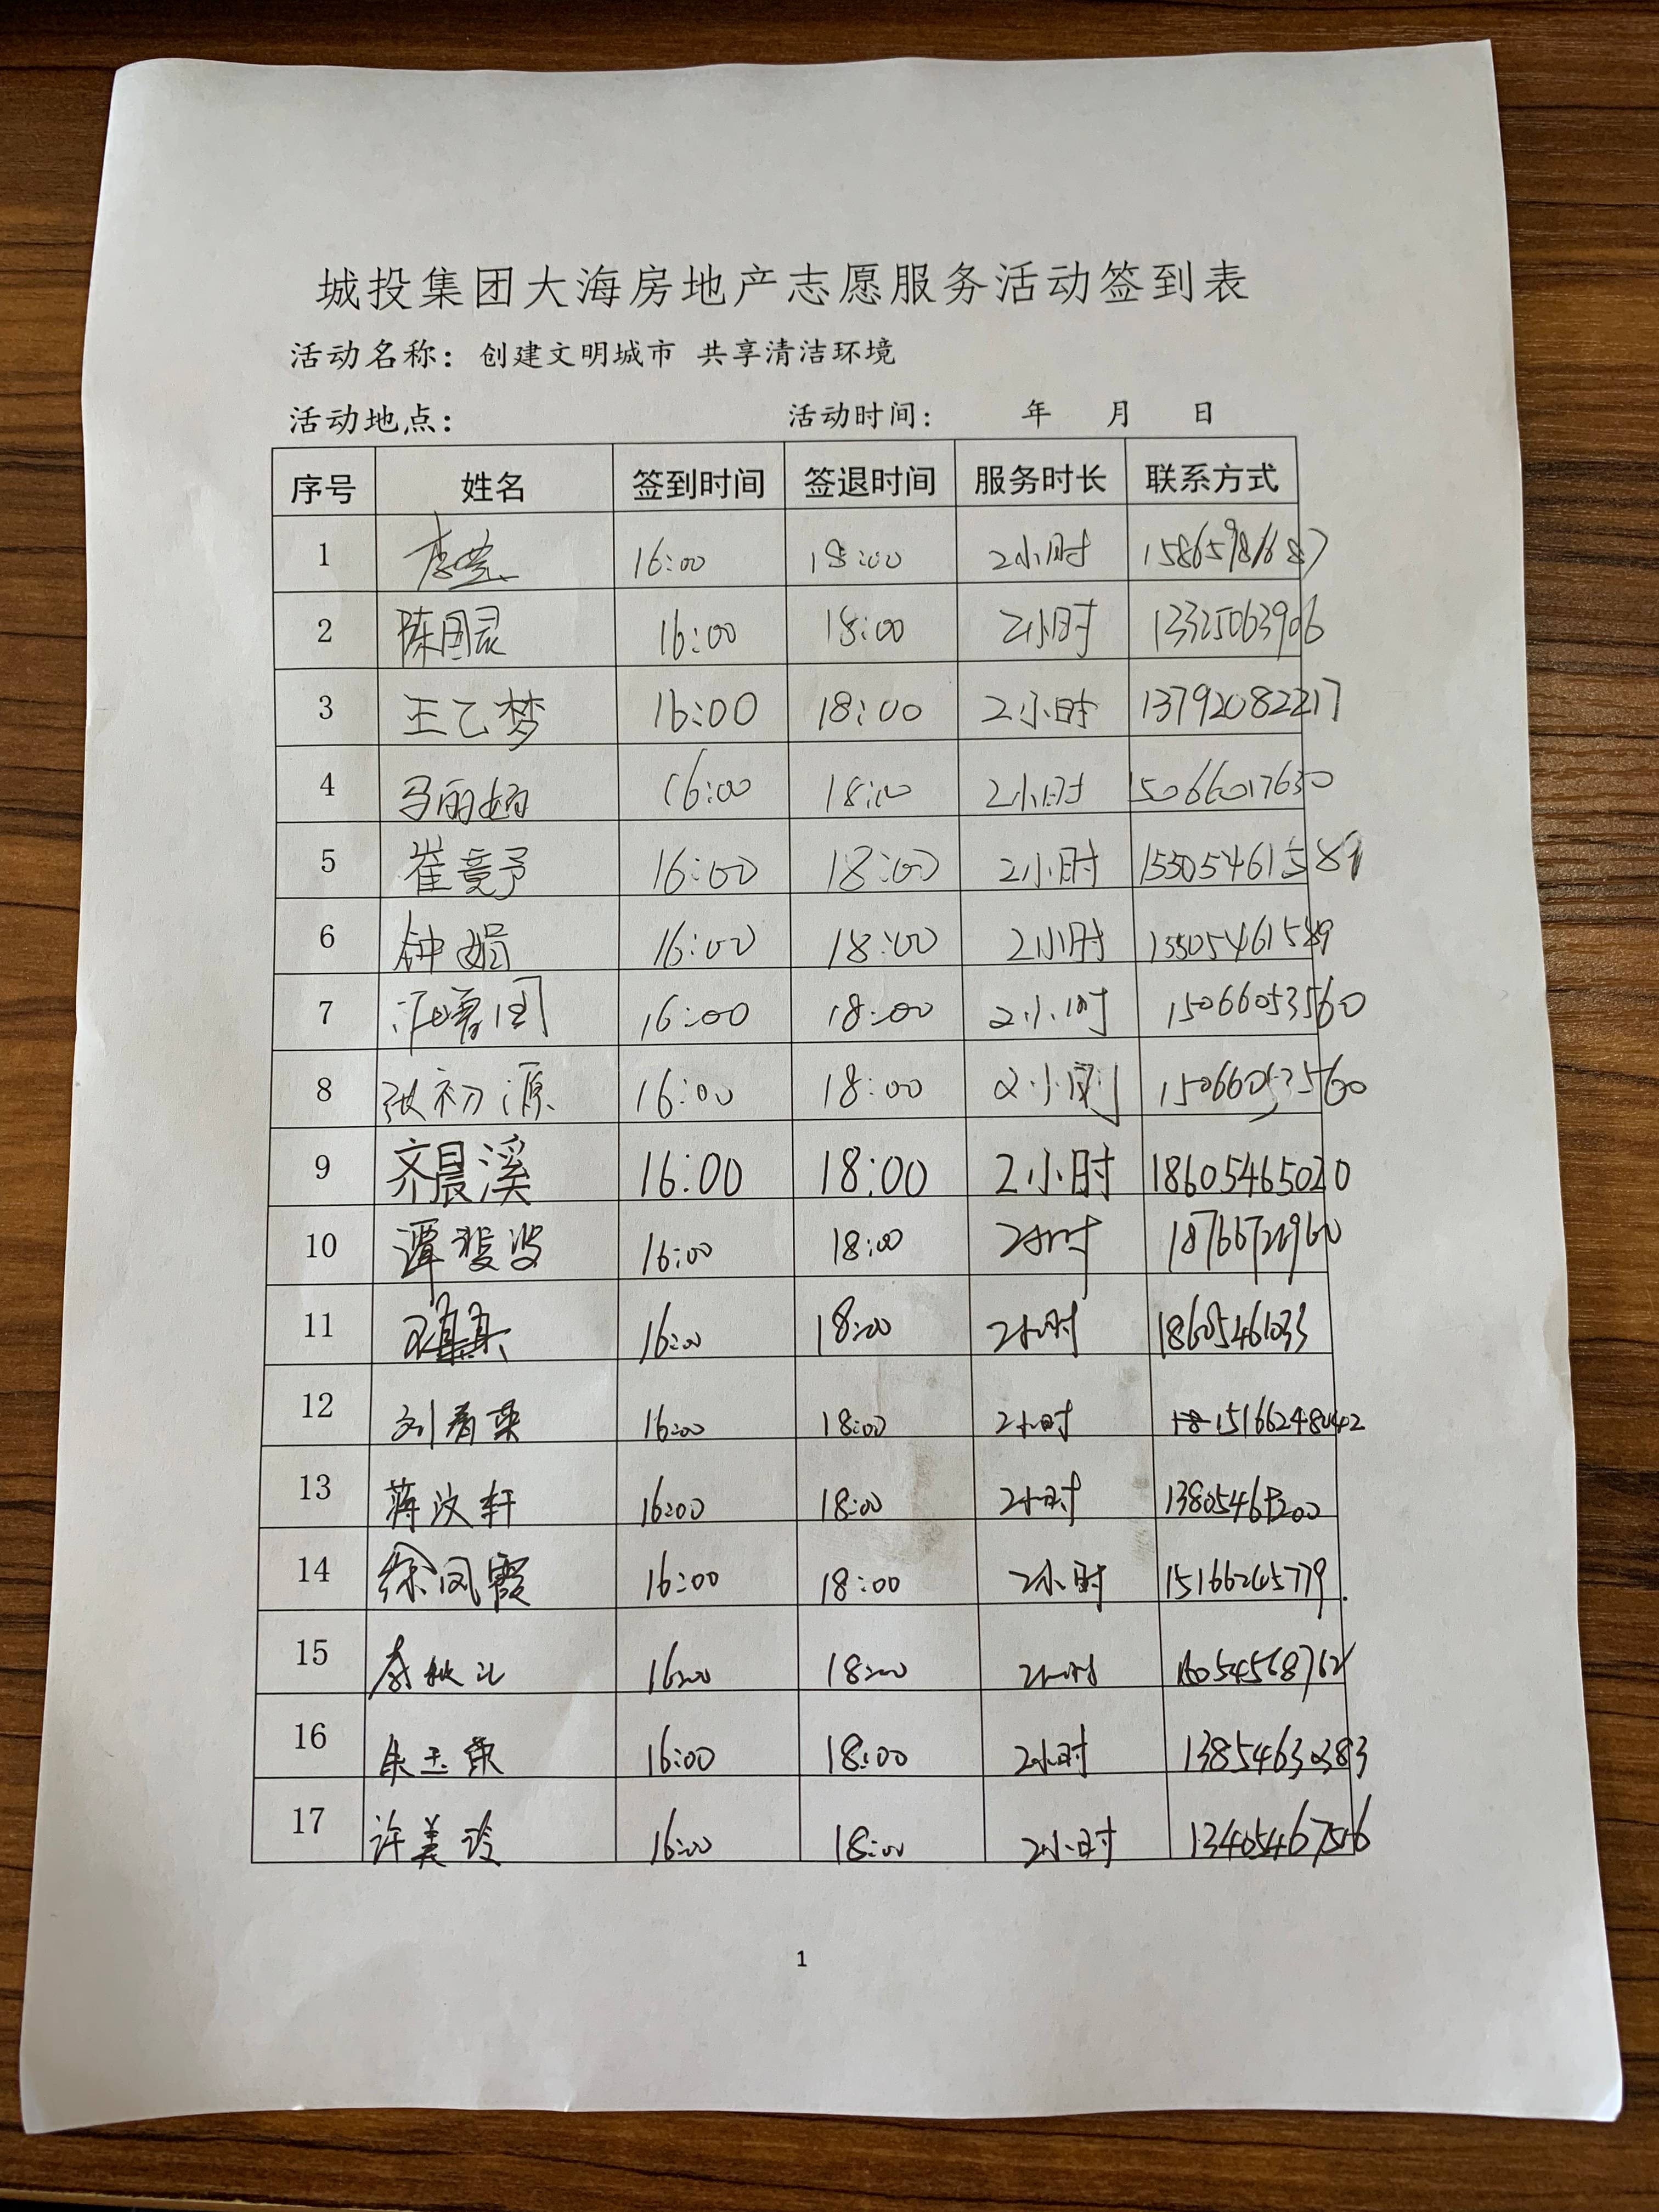 城投集团大海房地产志愿服务活动签到表
活动名称：创建文明城市 共享清洁环境
活动地点： 活动时间： 年 月 日
序号 姓名 签到时间 签退时间 服务时长 联系方式
1 16:00 18:00 2小时 15865981687
2 陈国灵 16:00 18:00 2小时 13325063906
3 王乙梦 16:00 18:00 2小时 13792082217
4 马丽娟 16:00 18:00 2小时 15066017630
5 崔竞予 16:00 18:00 2小时 15505461589
6 钟娟 16:00 18:00 2小时 15505461589
7 16:00 18:00 2小时 15066053560
8 张初源 16:00 18:00 2小时 15066053560
9 齐晨溪 16:00 18:00 2小时 18605465020
10 谭斐斐 16:00 18:00 2小时
11 王真真 16:00 18:00 2小时 18605461033
12 刘春荣 16:00 18:00 2小时 15166248042
13 蒋汶轩 16:00 18:00 2小时
14 徐凤霞 16:00 18:00 2小时 15166245779
15 16:00 18:00 2小时
16 朱玉荣 16:00 18:00 2小时 13854630383
17 许美玲 16:00 18:00 2小时 13405467516
1